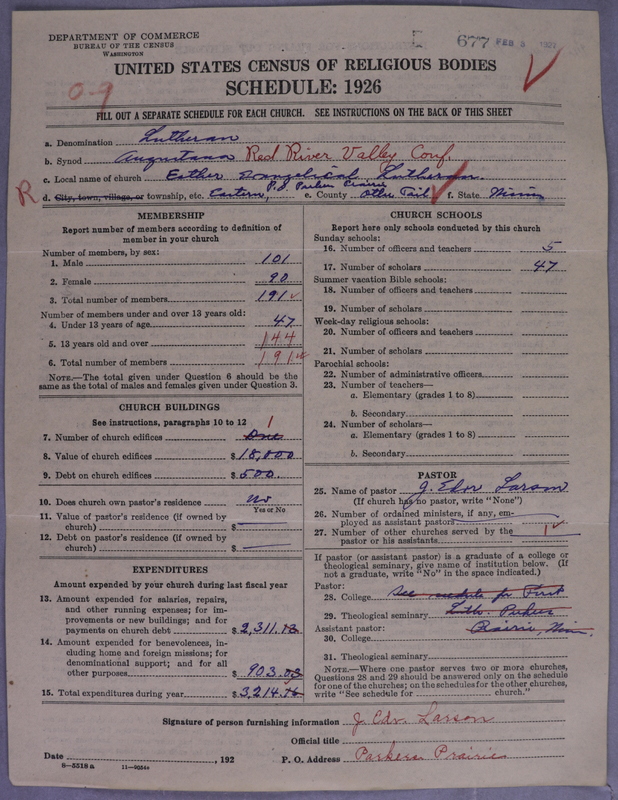 DEPARTMENT OF COMMERCE
BUREAU OF THE CENSUS
WASHINGTON
677 FEB 8 1927
UNITED STATES CENSUS OF RELIGIOUS BODIES
SCHEDULE: 1926
0-9
FILL OUT A SEPARATE SCHEDULE FOR EACH CHURCH. SEE INSTRUCTIONS ON THE BACK OF THIS SHEET
a. Denomination Lutheran
b. Synod Augustana Red River Valley Conf.
c. Local name of church Esther Evangelical Lutheran.
R d. City, town, village, or township, etc. Eastern, P.O. Parkers Prairie e. County Otter Tail f. State Minn
MEMBERSHIP
Report number of members according to definition of member in your church
Number of members, by sex:
1. Male 101
2. Female 90
3. Total number of members 191
Number of members under and over 13 years old:
4. Under 13 years of age 47
5. 13 years old and over 144
6. Total number of members 191
NOTE.—The total given under Question 6 should be the
same as the total of males and females given under Question 3.
CHURCH BUILDINGS
See instructions, paragraphs 10 to 12
7. Number of church edifices One 1
8. Value of church edifices $18,000
9. Debt on church edifices $500.
10. Does church own pastor's residence No
Yes or No
11. Value of pastor's residence (if owned by
church) $
12. Debt on pastor's residence (if owned by
church) $
EXPENDITURES
Amount expended by church during last fiscal year
13. Amount expended for salaries, repairs,
and other running expenses; for im-
provements or new buildings; and for
payments on church debt $2,311.
14. Amount expended for benevolences, in-
cluding home and foreign missions; for
denominational support; and for all
other purposes $903.
15. Total expenditures during year $3,214.
CHURCH SCHOOLS
Report here only schools conducted by this church
Sunday schools:
16. Number of officers and teachers 5
17. Number of scholars 47
Summer vacation Bible schools:
18. Number of officers and teachers
19. Number of scholars
Week-day religious schools:
20. Number of officers and teachers
21. Number of scholars
Parochial schools:
22. Number of administrative officers
23. Number of teachers—
a. Elementary (grades 1 to 8)
b. Secondary
24. Number of scholars—
a. Elementary (grades 1 to 8)
b. Secondary
PASTOR
25. Name of pastor J. Edor Larson
(If church has no pastor, write "None")
26. Number of ordained ministers, if any, em-
ployed as assistant pastors
27. Number of other churches served by the
pastor or his assistants 1
If pastor (or assistant pastor) is a graduate of a college or
theological seminary, give name of institution below. (If
not a graduate, write "No" in the space indicated.)
Pastor:
28. College See schedule for First
29. Theological seminary Luth. Parkers
Assistant pastor: Prairie, Minn.
30. College
31. Theological seminary
NOTE.—Where one pastor serves two or more churches,
Questions 28 and 29 should be answered only on the schedule
for one of the churches; on the schedules for the other churches,
write "See schedule for church."
Signature of person furnishing information J. Edv. Larson
Official title
Date , 192 P. O. Address Parkers Prairie
8—5518 a